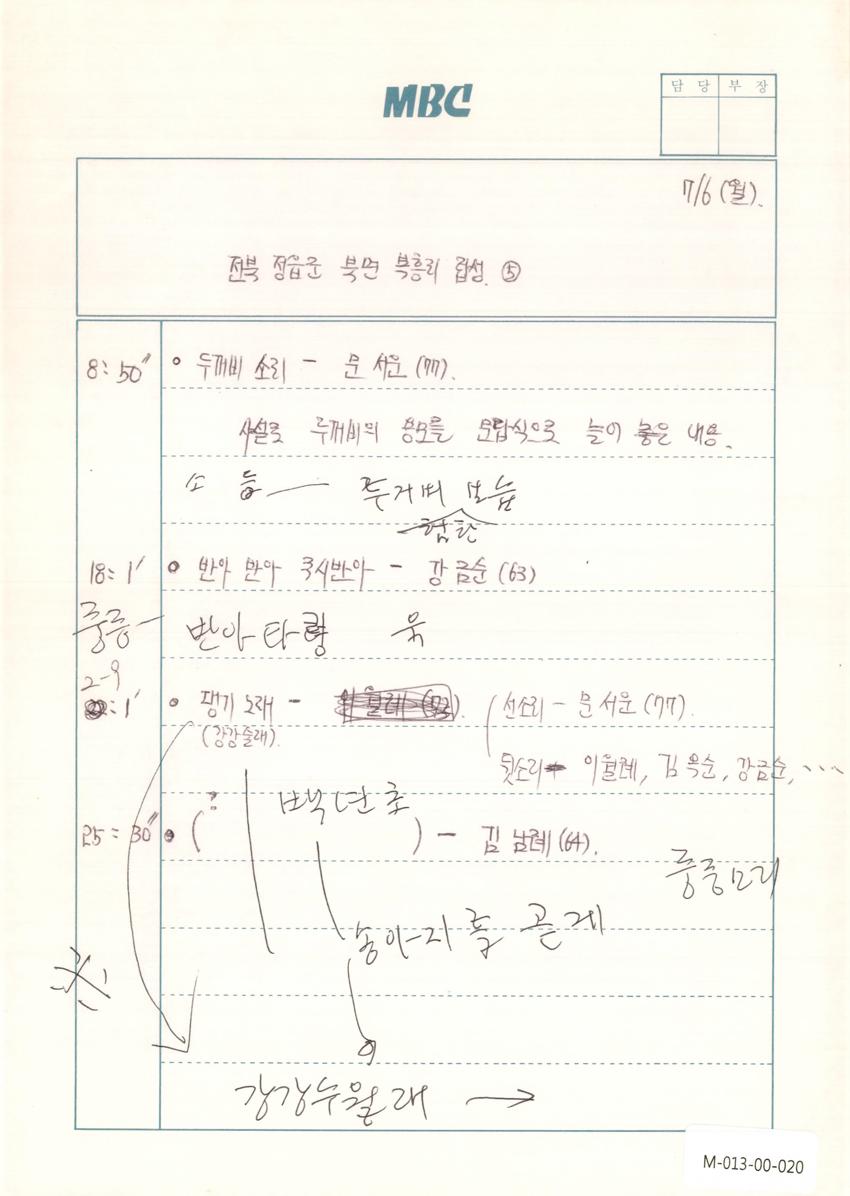 MBC
담 당 부 장
7/6 (월).
전북 정읍군 북면 복흥리 립성. ⑤
8: 50" ∘ 두꺼비 소리 - 문 서운 (77).
사설로 두꺼비의 용모를 문답식으로 늘어 놓은 내용.
소 등 — 두꺼비 모습
험탄
18: 1' ∘ 반아 반아 쿡시반아 - 강 금순 (63)
중중 - 반아타령 욱
2-9
: 1' • 댕기 노래 - 이월례 (73). 선소리 - 문 서운 (77).
(강강술래).
뒷소리 이월례, 김 옥순, 강금순, ...
? 백년초
25: 30" • ( ) - 김 남례 (64).
중중모리
송아지
강강수월래 →
M-013-00-020